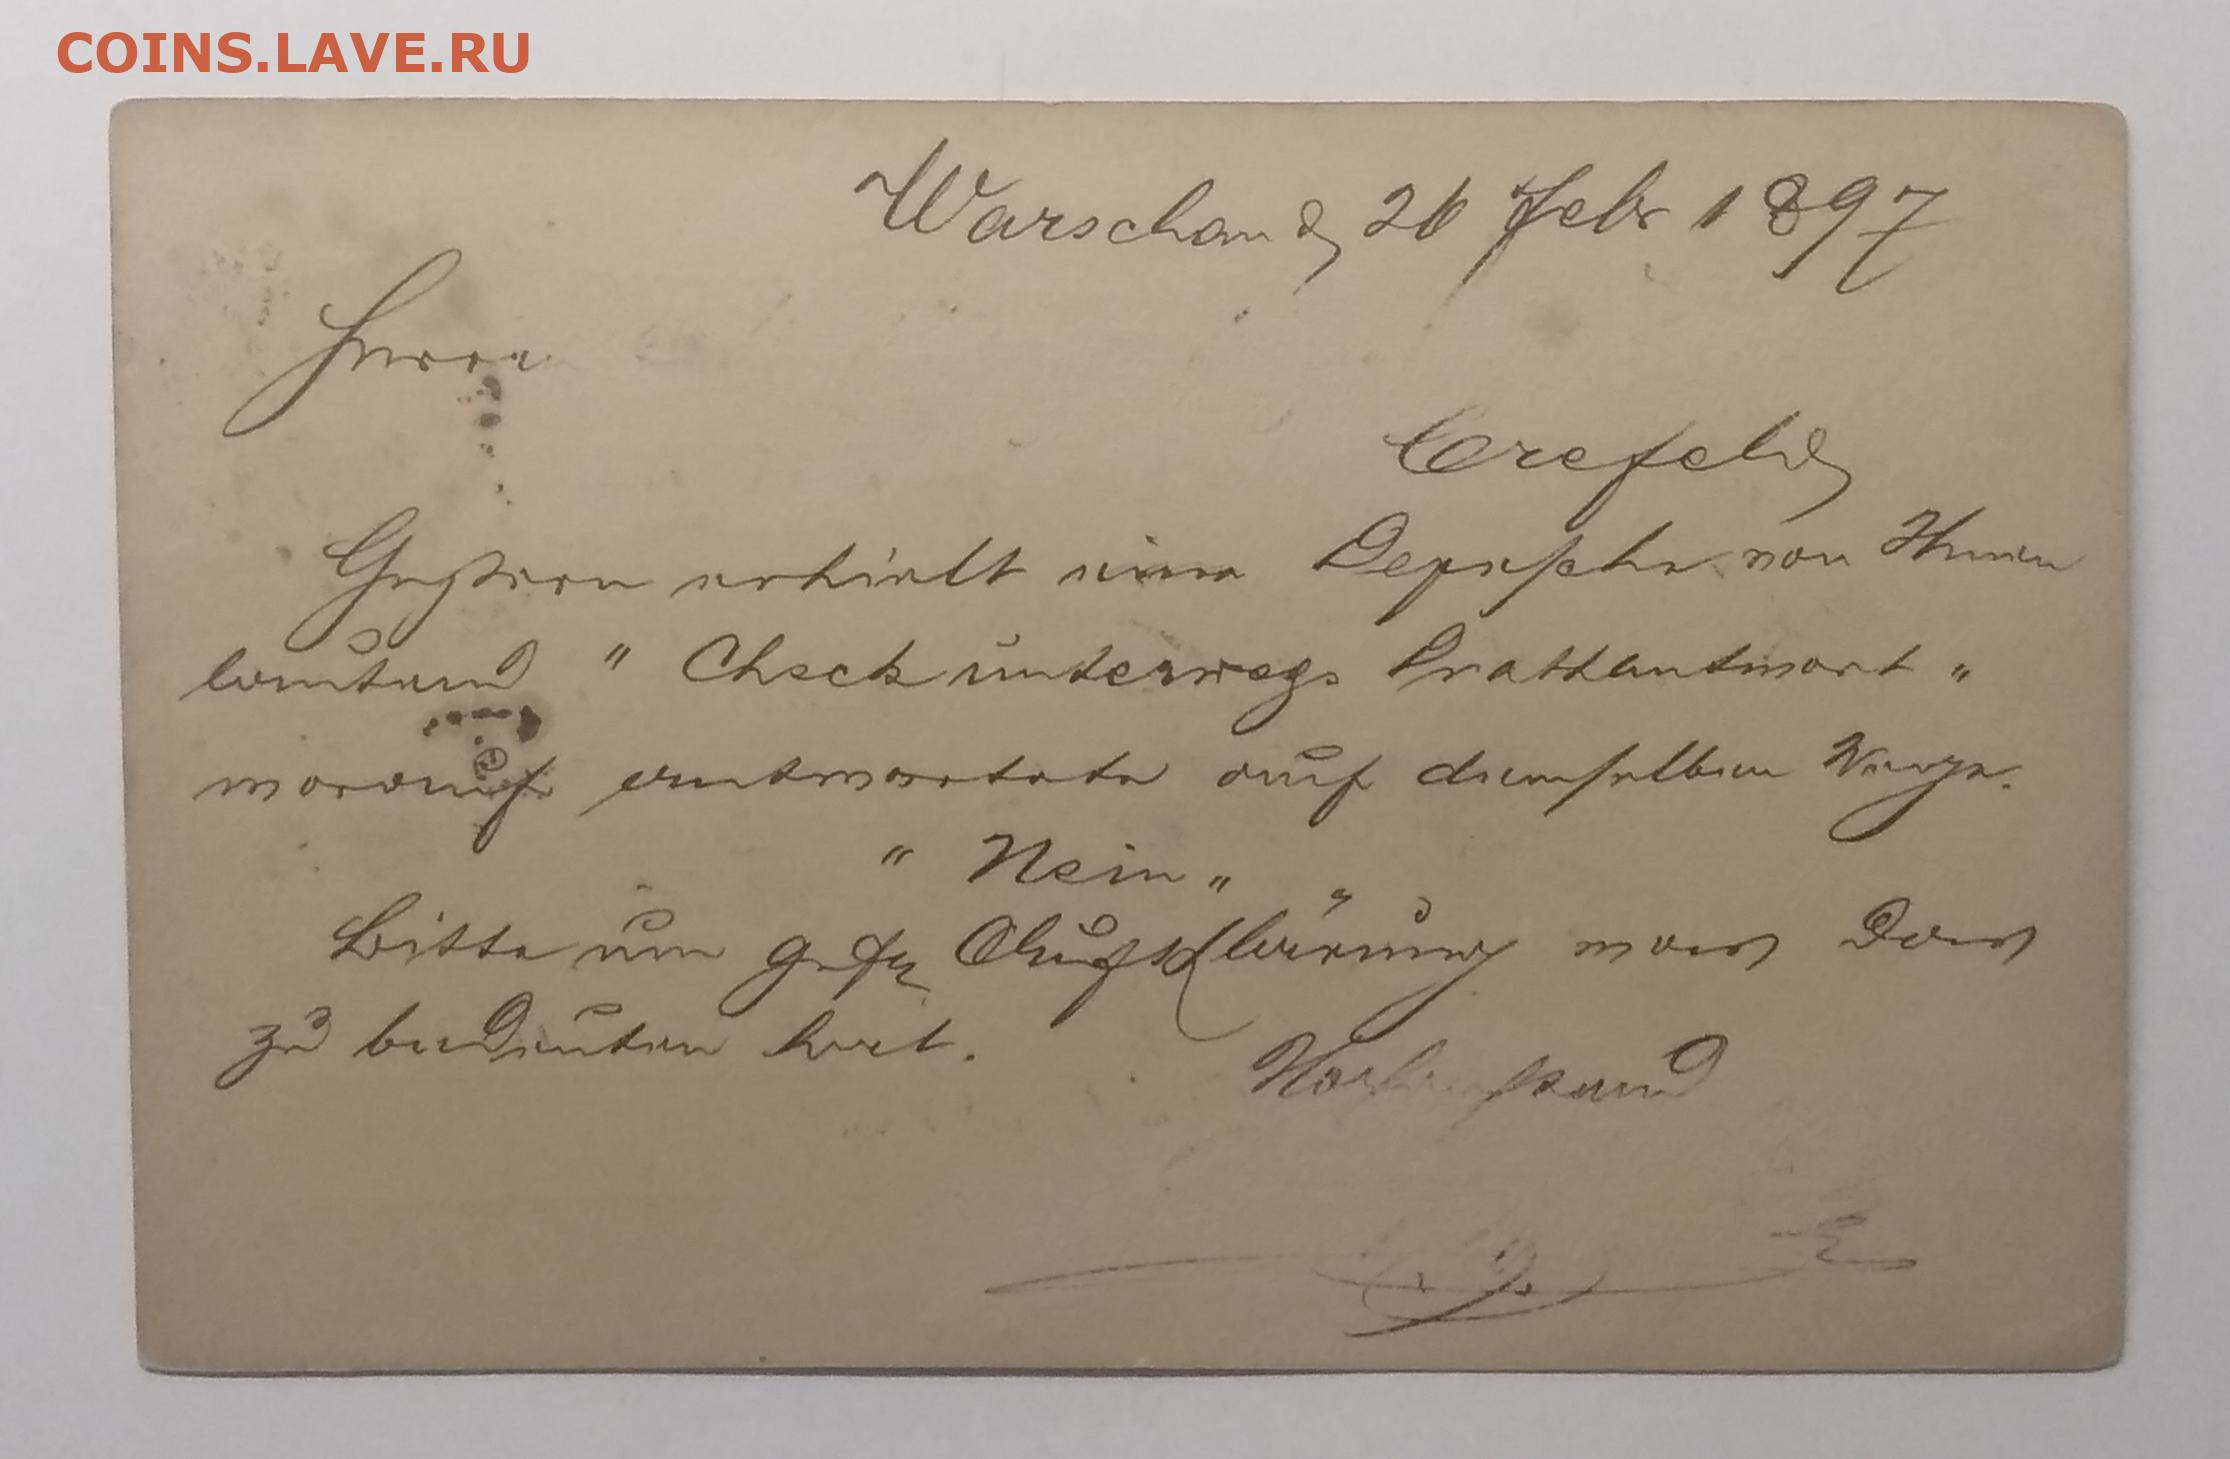 COINS.LAVE.RU
Warschau d 26 Febr 1897
Herrn
Crefeld
Gestern erhielt eine Depesche von Ihnen
lautend " Check unterwegs Drathantwort "
worauf antwortete auf demselben Wege.
" Nein "
Bitte um gefl Aufklärung was das
zu bedeuten hat.